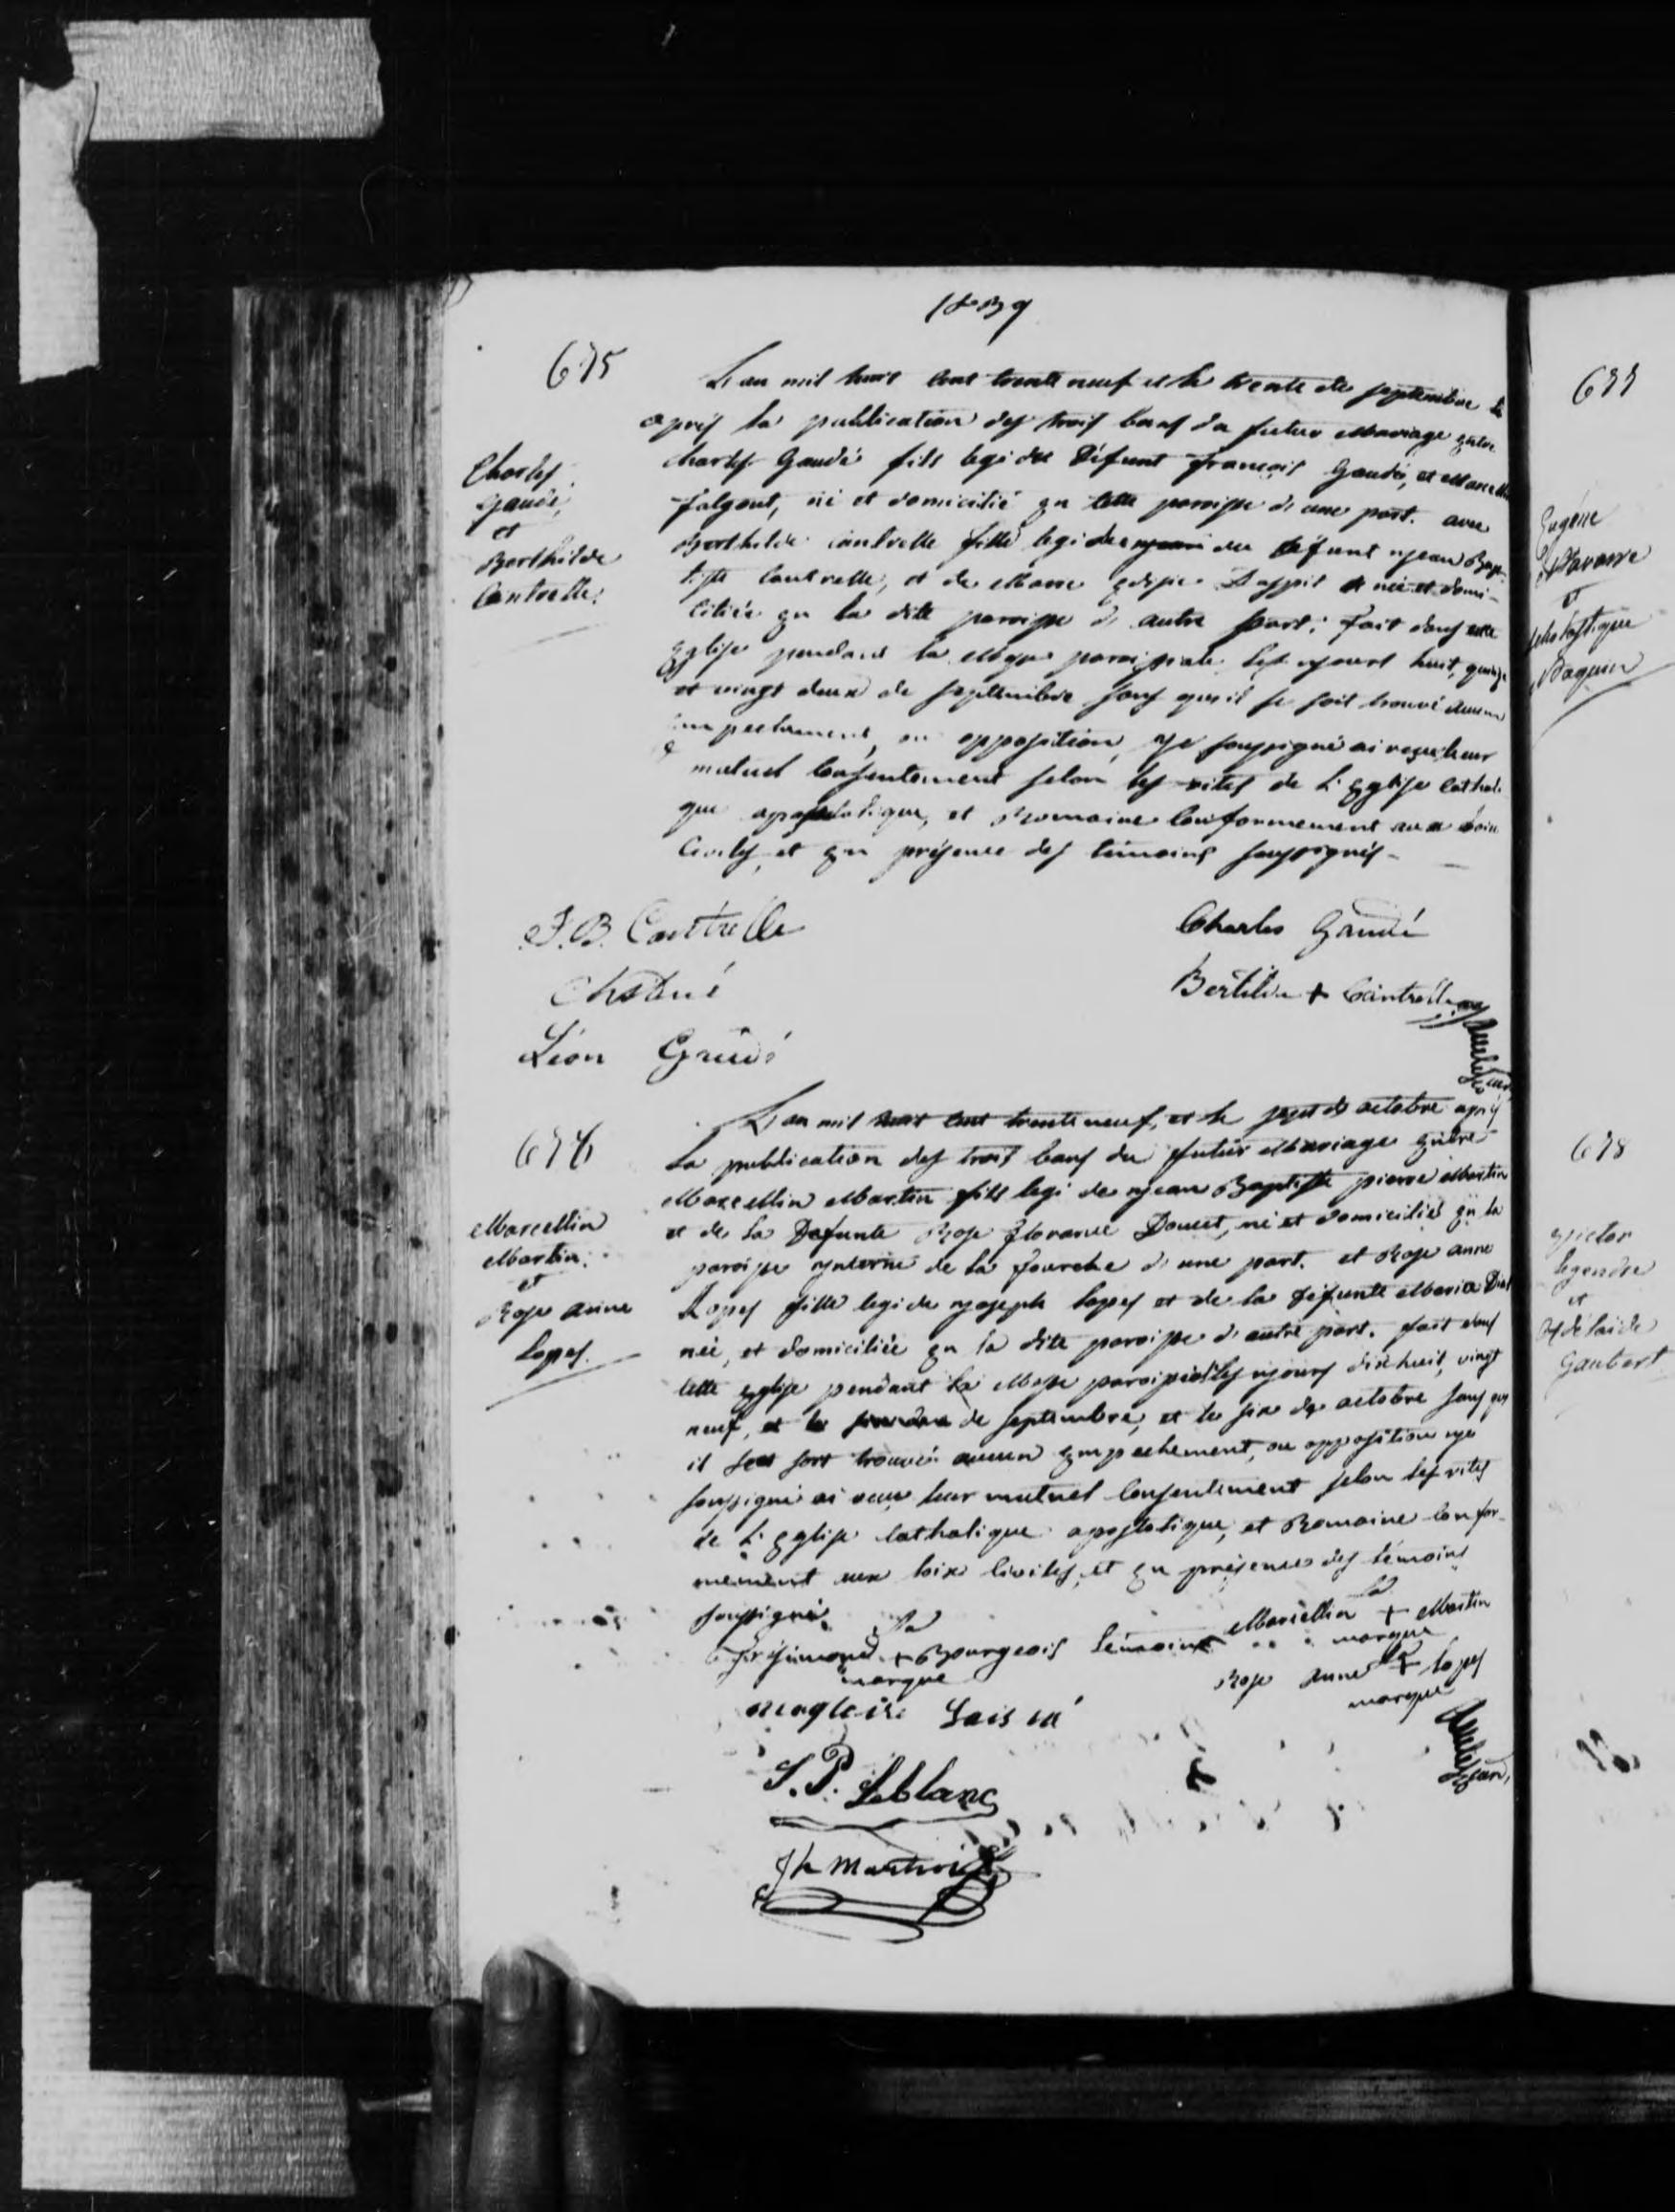 1839
675
L'an mil huit cent trente neuf et le trente de septembre
apres la publication des trois bans du futur Mariage entre
Charles
Gaudé,
et
Berthilde
Cantrelle.
charles Gaudé fils legi du Défunt françois Gaudé, et Marcelli
falgout, né et domicilié en cette paroisse d'une part. avec
Berthilde cantrelle fille legi du défunt jean Bap-
tiste Cantrelle, et de Marie née et domi-
ciliée en la dite paroisse d'autre part; fait dans cette
Eglise pendant la Messe paroissiale les jours huit, quinze
et vingt deux de septembre sans qu'il se soit trouvé aucun
empechement, ou opposition, je soussigné ai reçu leur
mutuel consentement selon les rites de l'Eglise catholi
que apostolique, et Romaine conformement aux loix
Civiles, et en présence des témoins soussignés-
J.B. Cantrelle
Charles Gaudé
Bertilde + Cantrelle
Léon Gaudé
676
L'an mil huit cent trente neuf, et le sept de octobre après
la publication des trois bans du futur Mariage entre
Marcellin
Martin.
et
Rose anne
Lopes.
Marcellin Martin fils legi de jean Baptiste pierre Martin
et de la Defunte Rose Doucet, né et domicilié en la
paroisse interne de la fourche d'une part. et Rose anne
Lopes fille legi de joseph Lopes et de la défunte Maria
née, et domiciliée en la dite paroisse d'autre part. fait dans
cette eglise pendant la Messe paroissiale les jours dix huit, vingt
neuf, de septembre, et le six de octobre sans qu
il se soit trouvé aucun empechement, ou opposition je
soussigné ai reçu leur mutuel consentement selon les rites
de l'Eglise catholique apostolique, et Romaine confor-
mement aux loix civiles, et en présence des témoins
soussigné.
sa
Marcellin + Martin
marque
sa
+ Bourgeois témoins
marque
Rose anne sa + Lopes
marque
S.P. Leblanc
677
Eugéne
et
678
victor
legendre
et
Adélaide
Gaubert